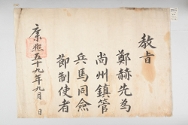 教旨
鄭赫先為
尚州鎮管
兵馬同僉
節制使者
康熙五十九年九月 日